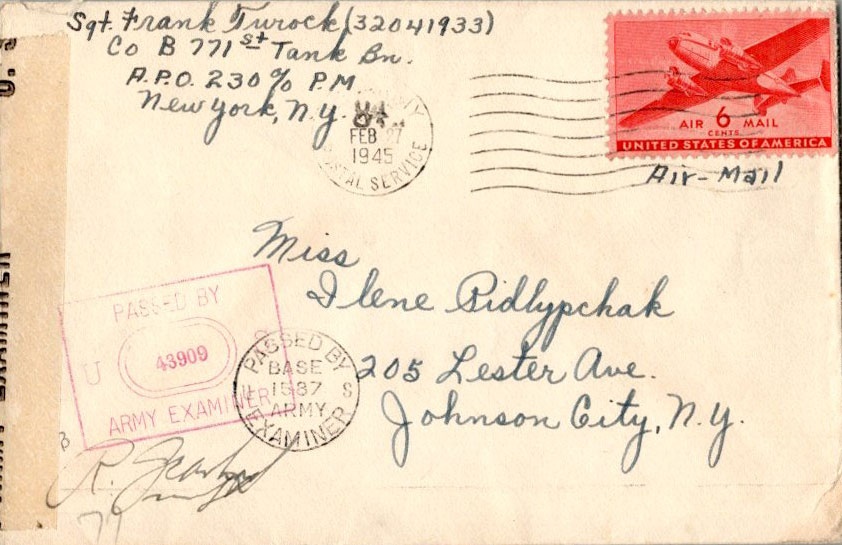 Sgt. Frank Turock (32041933)
Co B 771st Tank Bn.
A.P.O. 230 % P.M
New York, N.Y.
FEB 27
1945
POSTAL SERVICE
AIR 6 MAIL
CENTS
UNITED STATES OF AMERICA
Air-Mail
Miss
Ilene Pidlypchak
205 Lester Ave.
Johnson City, N.Y.
PASSED BY
U 43909 S
ARMY EXAMINER
PASSED BY
BASE
1537
U S
ARMY
EXAMINER
R.
77
U.S
EXAMINER